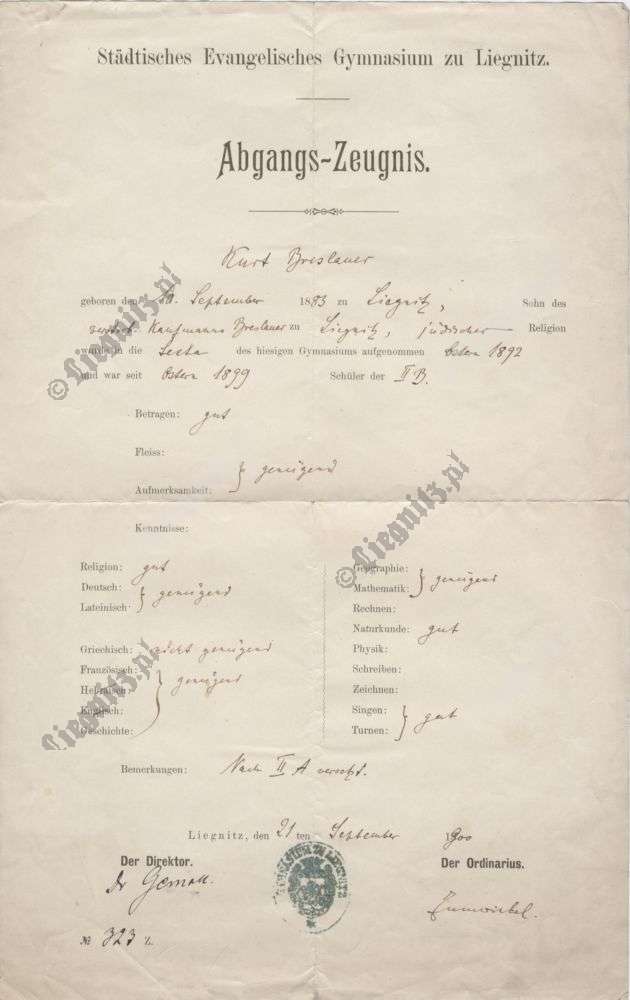 Städtisches Evangelisches Gymnasium zu Liegnitz.
Abgangs-Zeugnis.
Kurt Breslauer
geboren den 10. September 1883 zu Liegnitz, Sohn des
verstorb. Kaufmanns Breslauer zu Liegnitz, jüdischer Religion
wurde in die Sexta des hiesigen Gymnasiums aufgenommen Ostern 1892
und war seit Ostern 1899 Schüler der II B.
Betragen: gut
Fleiss:
Aufmerksamkeit: } genügend
Kenntnisse:
Religion: gut
Deutsch:
Lateinisch: } genügend
Griechisch: nicht genügend
Französisch:
Hebräisch: } genügend
Englisch:
Geschichte:
Geographie:
Mathematik: } genügend
Rechnen:
Naturkunde: gut
Physik:
Schreiben:
Zeichnen:
Singen:
Turnen: } gut
Bemerkungen: Nach II A versetzt.
Liegnitz, den 21 ten September 1900
Der Direktor. Der Ordinarius.
Dr Gemoll.
GYMNASIUM ZU LIEGNITZ
№ 323
© Liegnitz.pl
© Liegnitz.pl
Liegnitz.pl